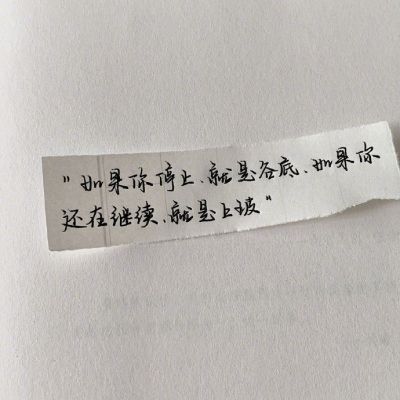 "如果你停止、就是谷底、如果你
还在继续、就是上坡"